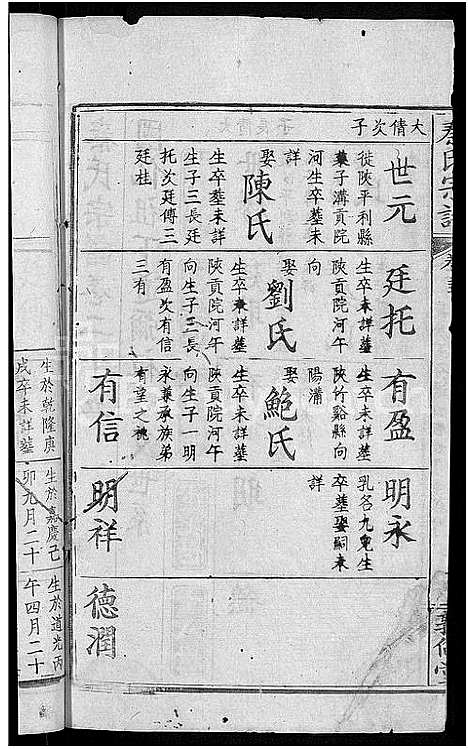 大倩次子
世元
徙陝平利縣
藥子溝貢院
河生卒塟未
詳
娶
陳氏
生卒塟未詳
生子三長廷
托次廷傳三
廷桂
廷托
生卒未詳塟
陝貢院河午
向
娶
劉氏
生卒未詳塟
陝貢院河午
向生子三長
有盈次有信
三有
有盈
生卒未詳塟
陝竹谿縣向
陽灣
娶
鮑氏
生卒未詳塟
陝貢院河午
向生子一明
永兼承族弟
有望之祧
有信
明永
乳名九兒生
卒塟娶嗣未
詳
明祥
德潤
生於乾隆庚
戌卒未詳塟
生於嘉慶己
卯元月二十
生於道光丙
午四月二十